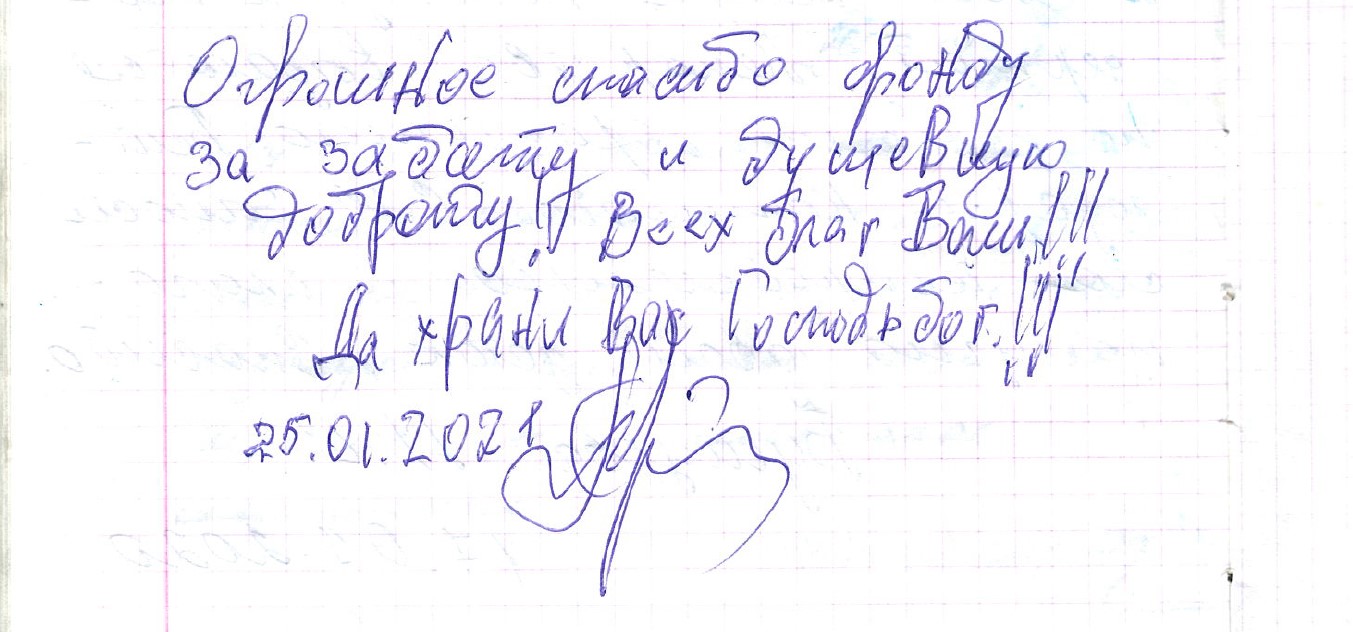 Огромное спасибо фонду
за заботу и душевную
доброту! Всех благ Вам!!!
Да храни Вас Господь бог.!!!
25.01.2021